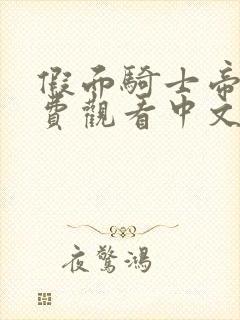 假面騎士帝
費觀看中文
夜驚鴻